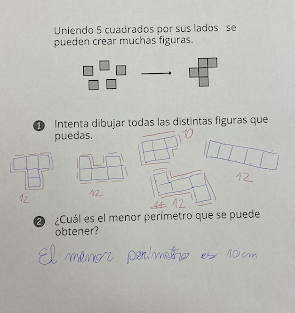 Uniendo 5 cuadrados por sus lados se
pueden crear muchas figuras.
1 Intenta dibujar todas las distintas figuras que
puedas.
10
12
12
12
12
2 ¿Cuál es el menor perímetro que se puede
obtener?
El menor perímetro es 10 cm